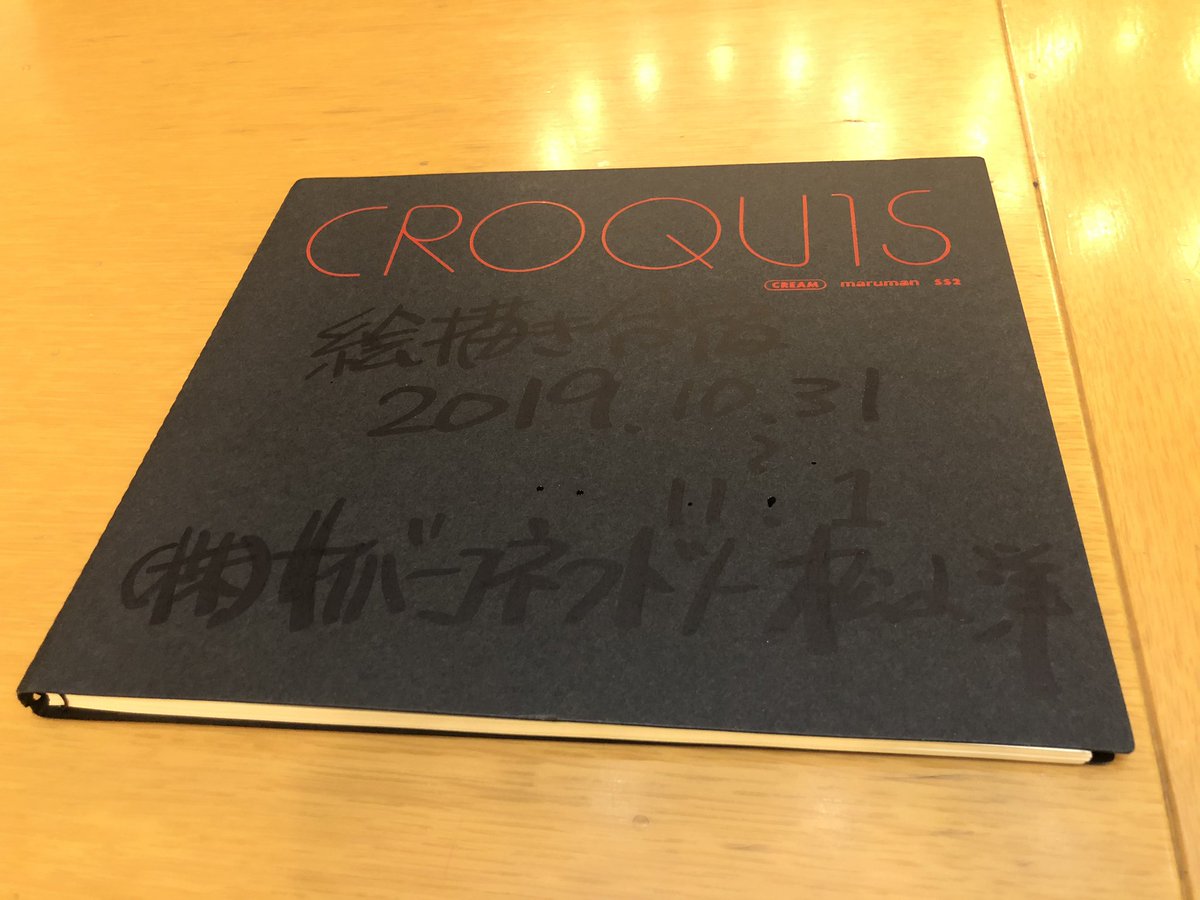 CROQUIS
CREAM maruman SS2
絵描き合宿
2019.10.31
~
11.1
(株)サイバーコネクトツー 松山洋